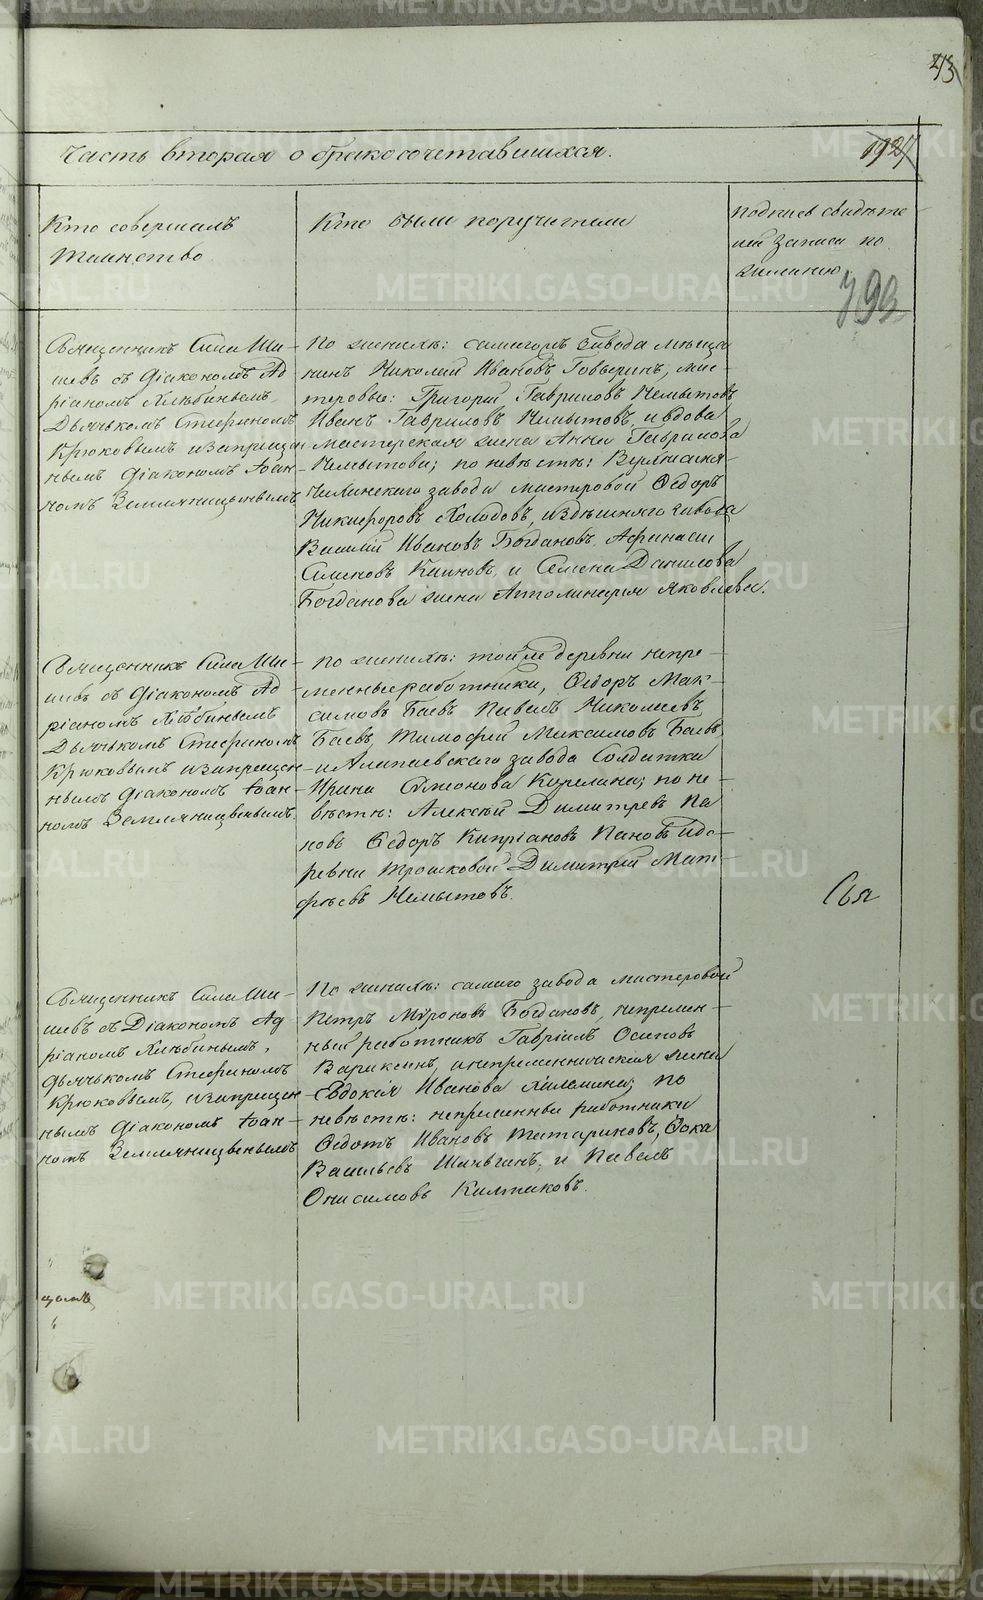 43
Часть вторая о бракосочетавшихся.
Кто совершалъ
таинство
Кто были поручители
подпись свидѣте
лей записи по
желанію
799
Священникъ Сила Ши-
шевъ съ Діакономъ Ад
ріаномъ Хлѣбинымъ
Дьячькомъ Стефаномъ
Крюковымъ и запрещен
нымъ Діакономъ Іоан-
номъ Земляницынымъ
По женихѣ: самагожъ завода мѣща
нинъ Николай Ивановъ Говыринъ, мас-
теровые: Григорій Гавриловъ Немытовъ
Иванъ Гавриловъ Немытовъ, и вдова
мастерская жена Анна Гаврилова
Немытова; по невѣстѣ: Верхнеси-
чихинскаго завода мастеровой Ѳедоръ
Никифоровъ Холодовъ, и здѣшняго завода
Василій Ивановъ Богдановъ, Афанасій
Семеновъ и Семена Данилова
Богданова жена Аполинарія Яковлева.
Священникъ Сила Ши-
шевъ съ Діакономъ Ад
ріаномъ Хлѣбинымъ
Дьячькомъ Стефаномъ
Крюковымъ и запрещен
нымъ Діакономъ Іоан-
номъ Земляницынымъ.
по женихѣ: той же деревни непре-
менные работники, Ѳедоръ Мак-
симовъ Баевъ Павелъ Николаевъ
Баевъ, Тимофей Максимовъ Баевъ,
и Алапаевскаго завода Солдатка
Ирина Карелина; по не-
вѣстѣ: Алексѣй Димитревъ Па
новъ Ѳедоръ Кипріановъ Пановъ и де-
ревни Трошковой Димитрій Мат-
фѣевъ Немытовъ.
Свя
Священникъ Сила Ши-
шевъ съ Діакономъ Ад
ріаномъ Хлѣбинымъ,
дьячькомъ Стефаномъ
Крюковымъ, и запрещен
нымъ Діакономъ Іоан-
номъ Земляницынымъ
По женихѣ: самаго завода мастеровой
Петръ Мѵроновъ Богдановъ, непремен-
ный работникъ Гавріилъ Осиповъ
Вараксинъ, и непременническая жена
Евдокія Иванова по
невѣстѣ: непременные работники
Ѳедотъ Ивановъ Татариновъ, Ѳока
Васильевъ Шаньгинъ, и Павелъ
Онисимовъ Калтаковъ.
METRIKI.GASO-URAL.RU